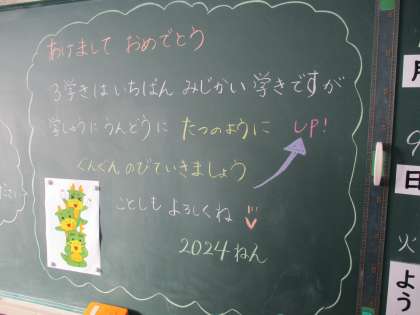 あけまして おめでとう
3学きは いちばん みじかい 学きですが
学しゅうに うんどうに たつのように UP!
ぐんぐん のびていきましょう
ことしも よろしくね
2024ねん
月
日
火
よう